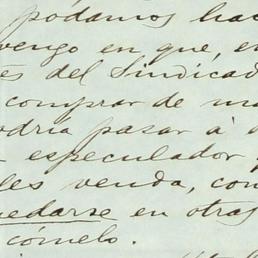 podamos hac
vengo en que, en
es del Sindicad
comprar de ma
odria pasar á e
especulador q
les venda, con
uedarse en otras
cómelo.